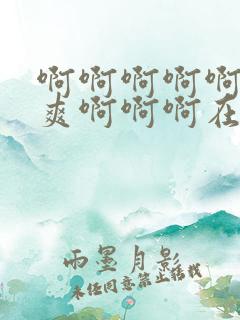 啊啊啊啊啊
爽啊啊啊在
雨墨月影
未经同意禁止转载